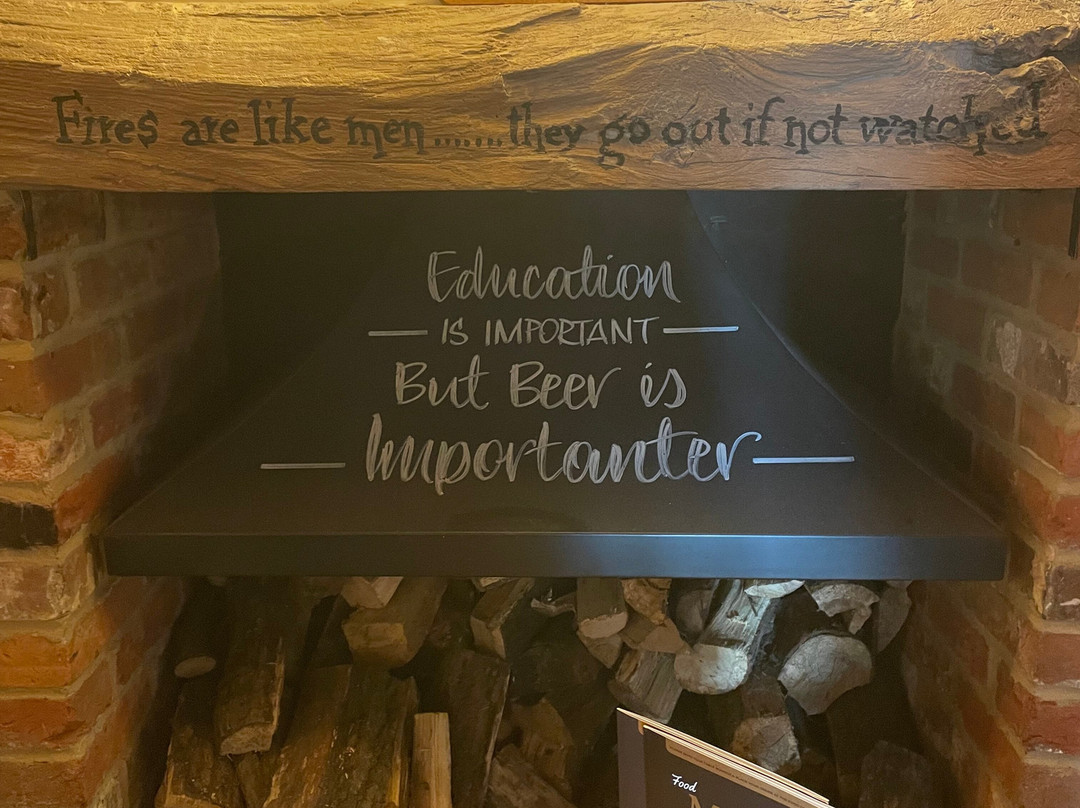 Fires are like men.......they go out if not watched
Education
IS IMPORTANT
But Beer is
Importanter
Food